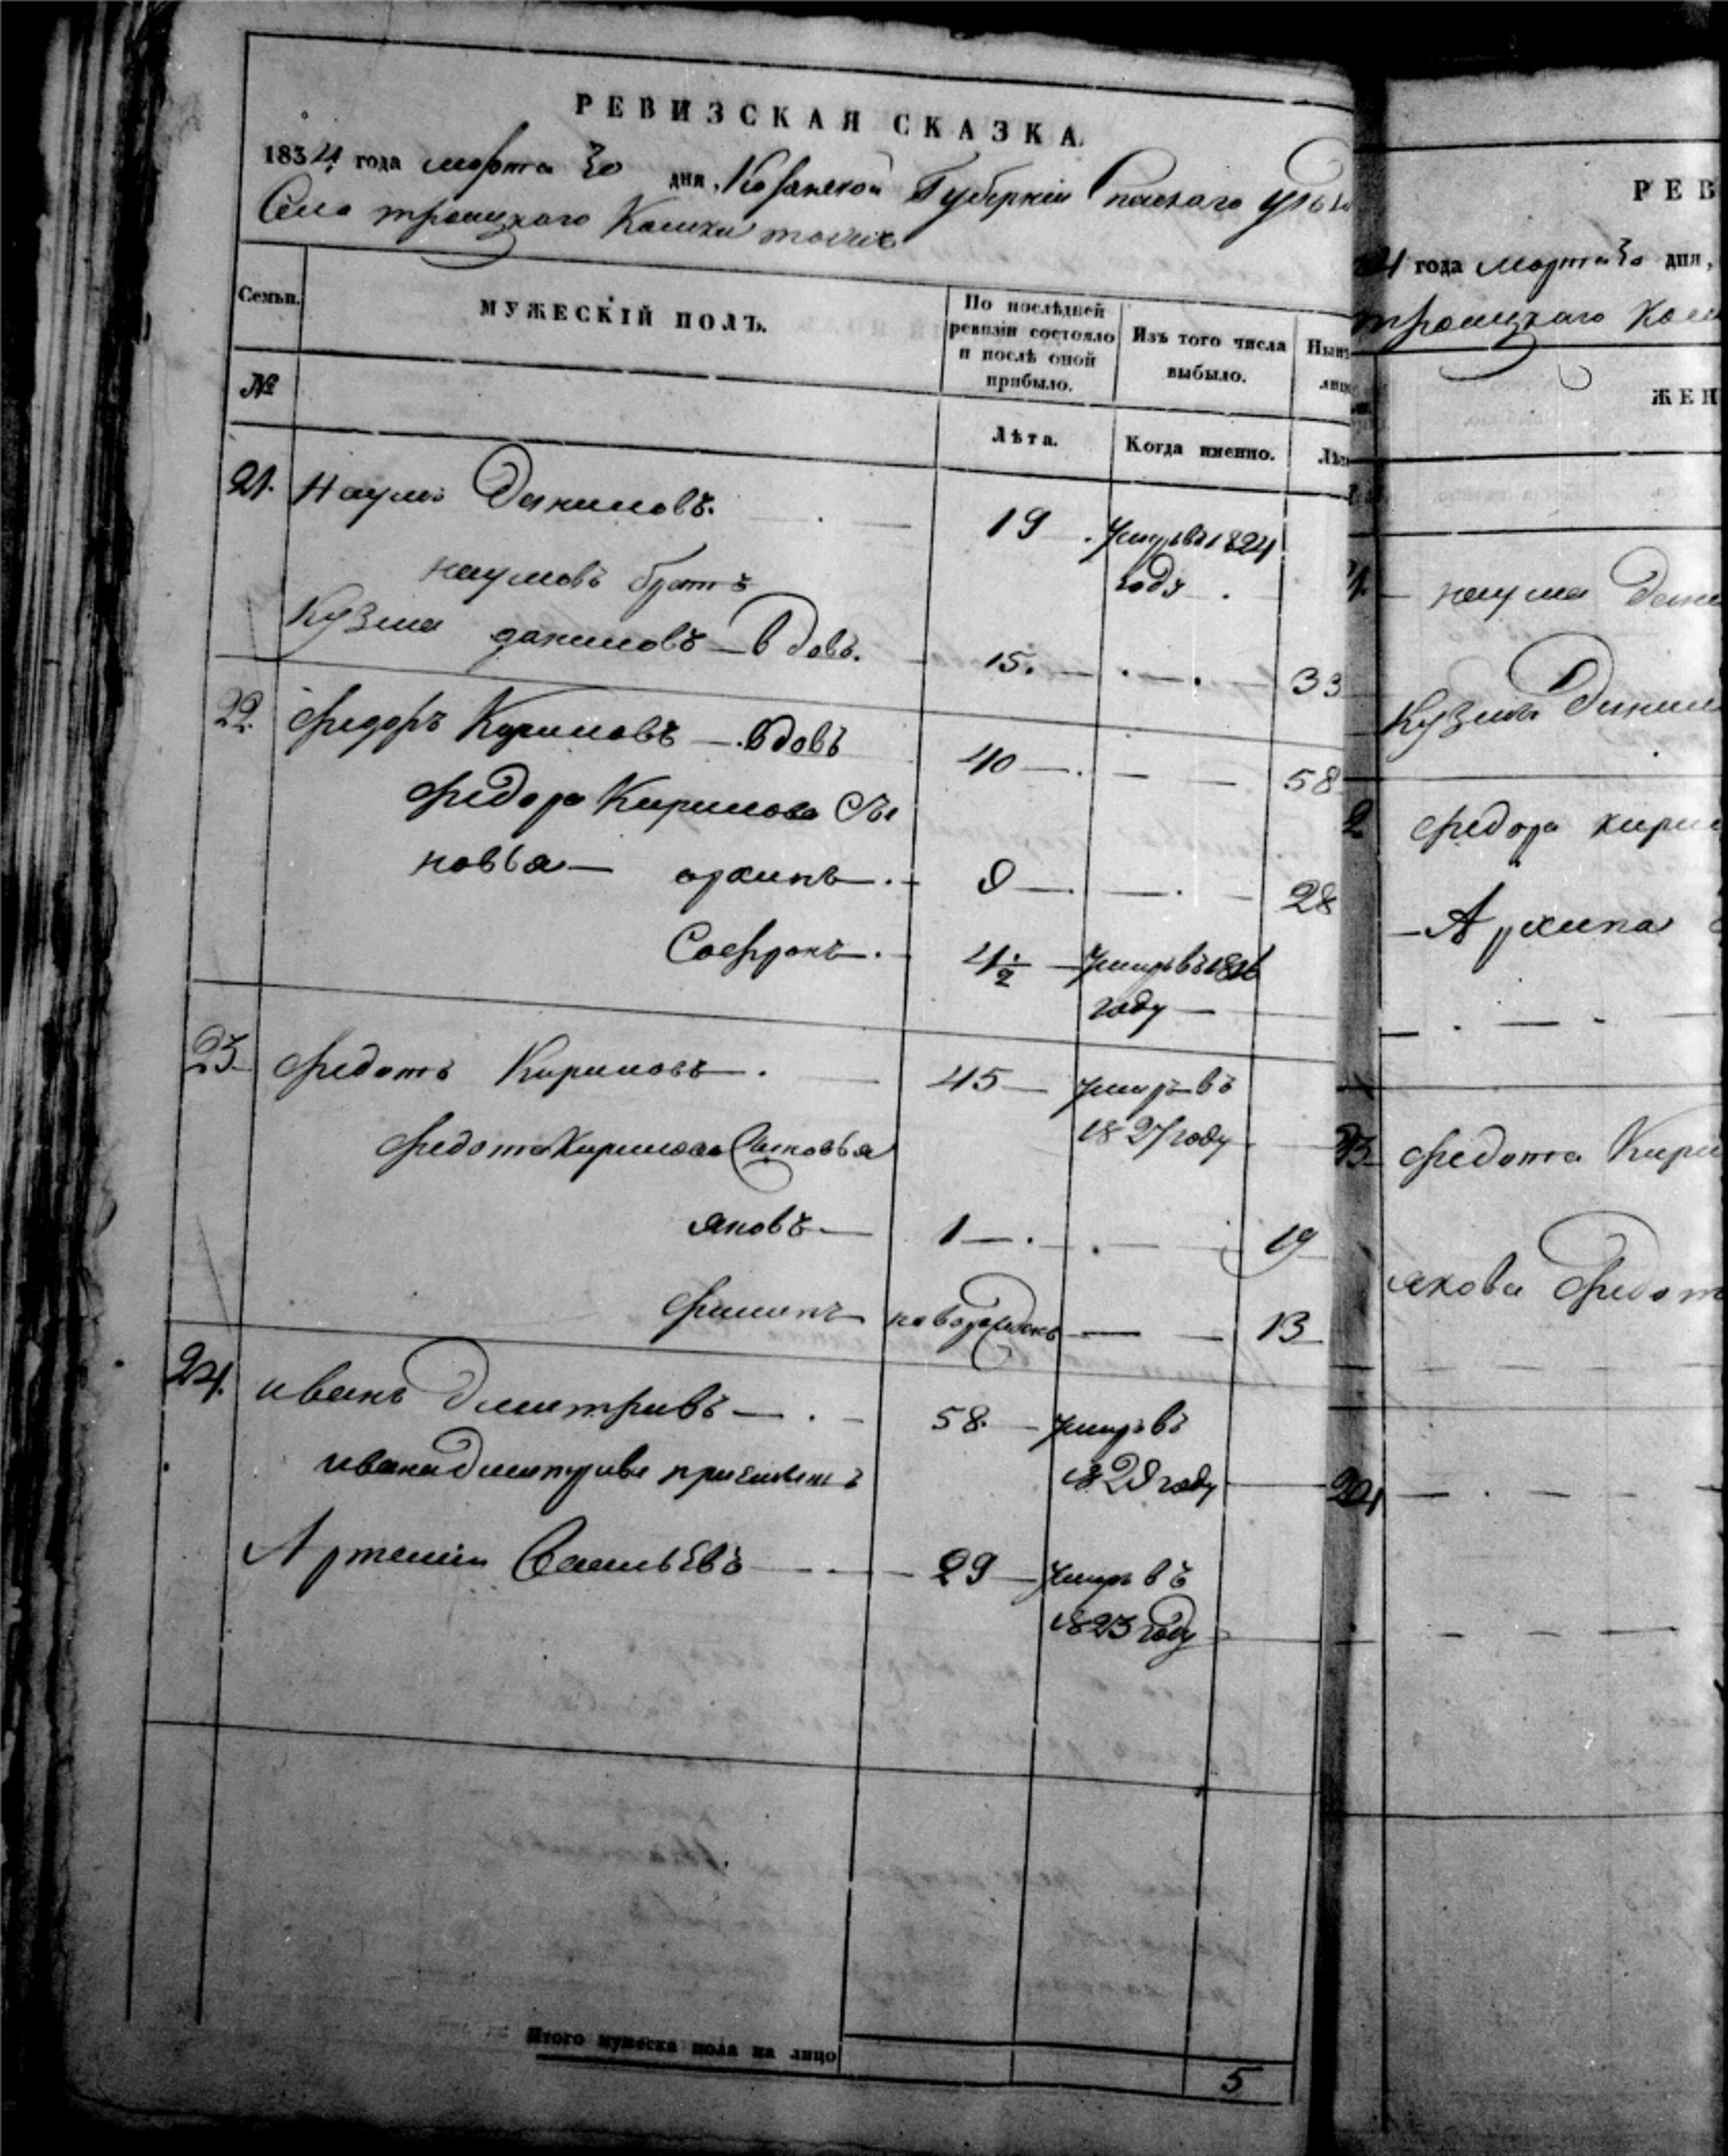 РЕВИЗСКАЯ СКАЗКА
1834 года марта 30 дня, Казанской Губернии Спаского уѣз
Села троицкаго
Семьи.
МУЖЕСКІЙ ПОЛЪ.
По послѣдней ревизіи состояло и послѣ оной прибыло.
Изъ того числа выбыло.
Нын
№
Лѣта.
Когда именно.
Лѣт
21. Наумъ Даниловъ. 19 умръ въ 1824
году
наумовъ братъ
Кузма даниловъ вдовъ. 15. 33
22. федоръ Кириловъ вдовъ 40 58
федора Кирилова Сы
новья архипъ 9 28
Софронъ 4 1/2 умиръ въ 1826
году
23 федотъ Кириловъ 45 умиръ въ
1827 году
федота Кирилова Сыновья
яковъ 1 19
филипъ новорожденъ 13
24. иванъ дмитривъ 58 умиръ въ
1829 году
ивана дмитрива
Артемій Васильевъ 29 умиръ въ
1823 году
Итого мужеска пола на лицо
5
РЕВ
4 года марта 30 дня,
троицкаго
ЖЕН
наума Дани
Кузмы Данил
2 федора кирил
Архипа
23 федота Кирил
якова федот
24